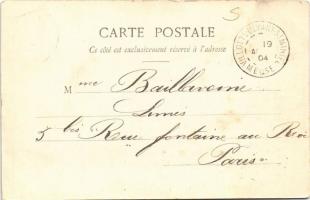 CARTE POSTALE
Ce côté est exclusivement réservé à l'adresse
19
04
MEUSE
Mme Baillavoine
5 bis Rue fontaine au Roi
Paris